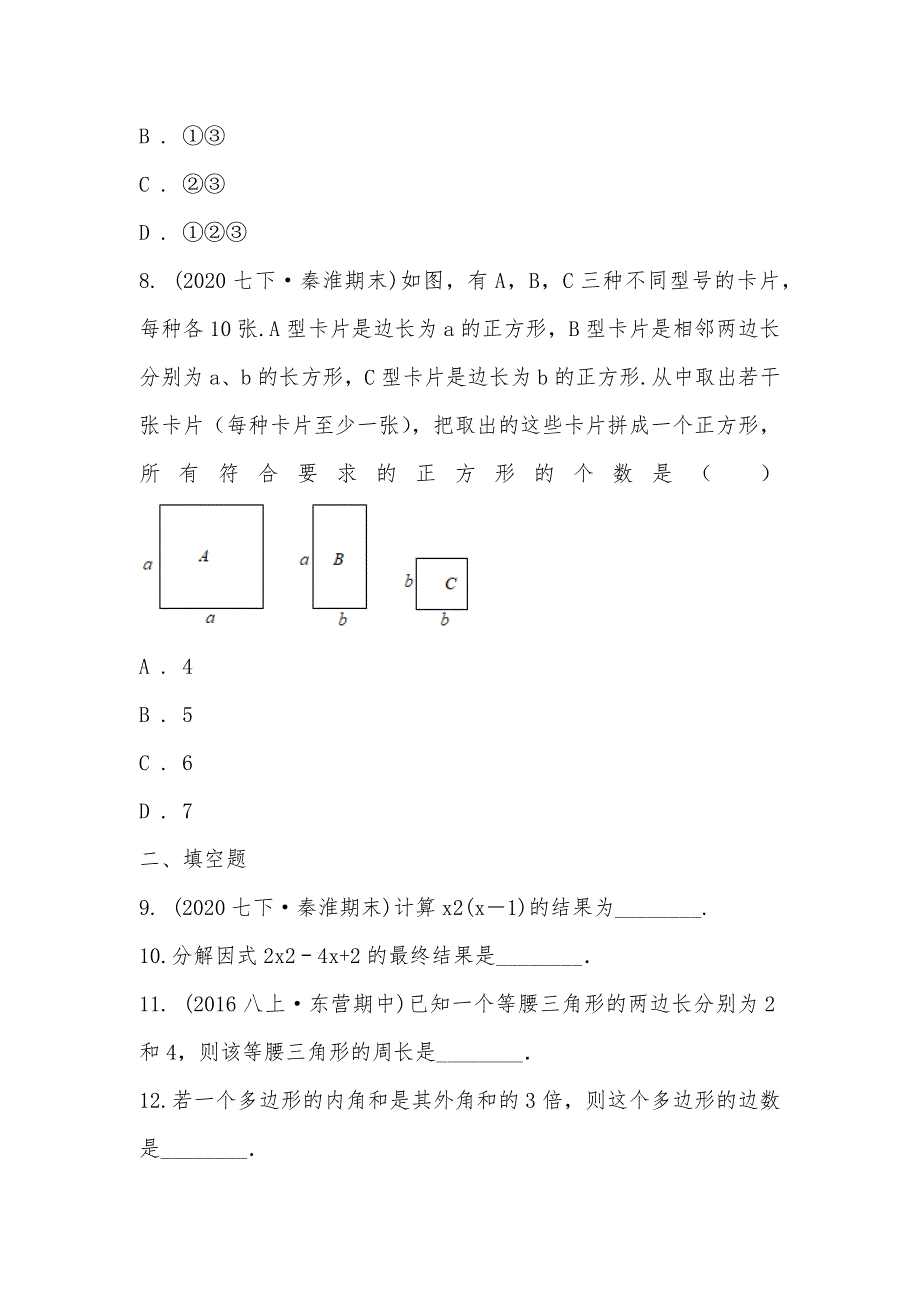 B . ①③
C . ②③
D . ①②③
8. (2020七下·秦淮期末)如图，有A，B，C三种不同型号的卡片，
每种各10张.A型卡片是边长为a的正方形，B型卡片是相邻两边长
分别为a、b的长方形，C型卡片是边长为b的正方形.从中取出若干
张卡片（每种卡片至少一张），把取出的这些卡片拼成一个正方形，
所有符合要求的正方形的个数是（ ）
a A a a B b b C b
A . 4
B . 5
C . 6
D . 7
二、填空题
9. (2020七下·秦淮期末)计算x2(x－1)的结果为________.
10.分解因式2x2﹣4x+2的最终结果是________．
11. (2016八上·东营期中)已知一个等腰三角形的两边长分别为2
和4，则该等腰三角形的周长是________．
12.若一个多边形的内角和是其外角和的3倍，则这个多边形的边数
是________．